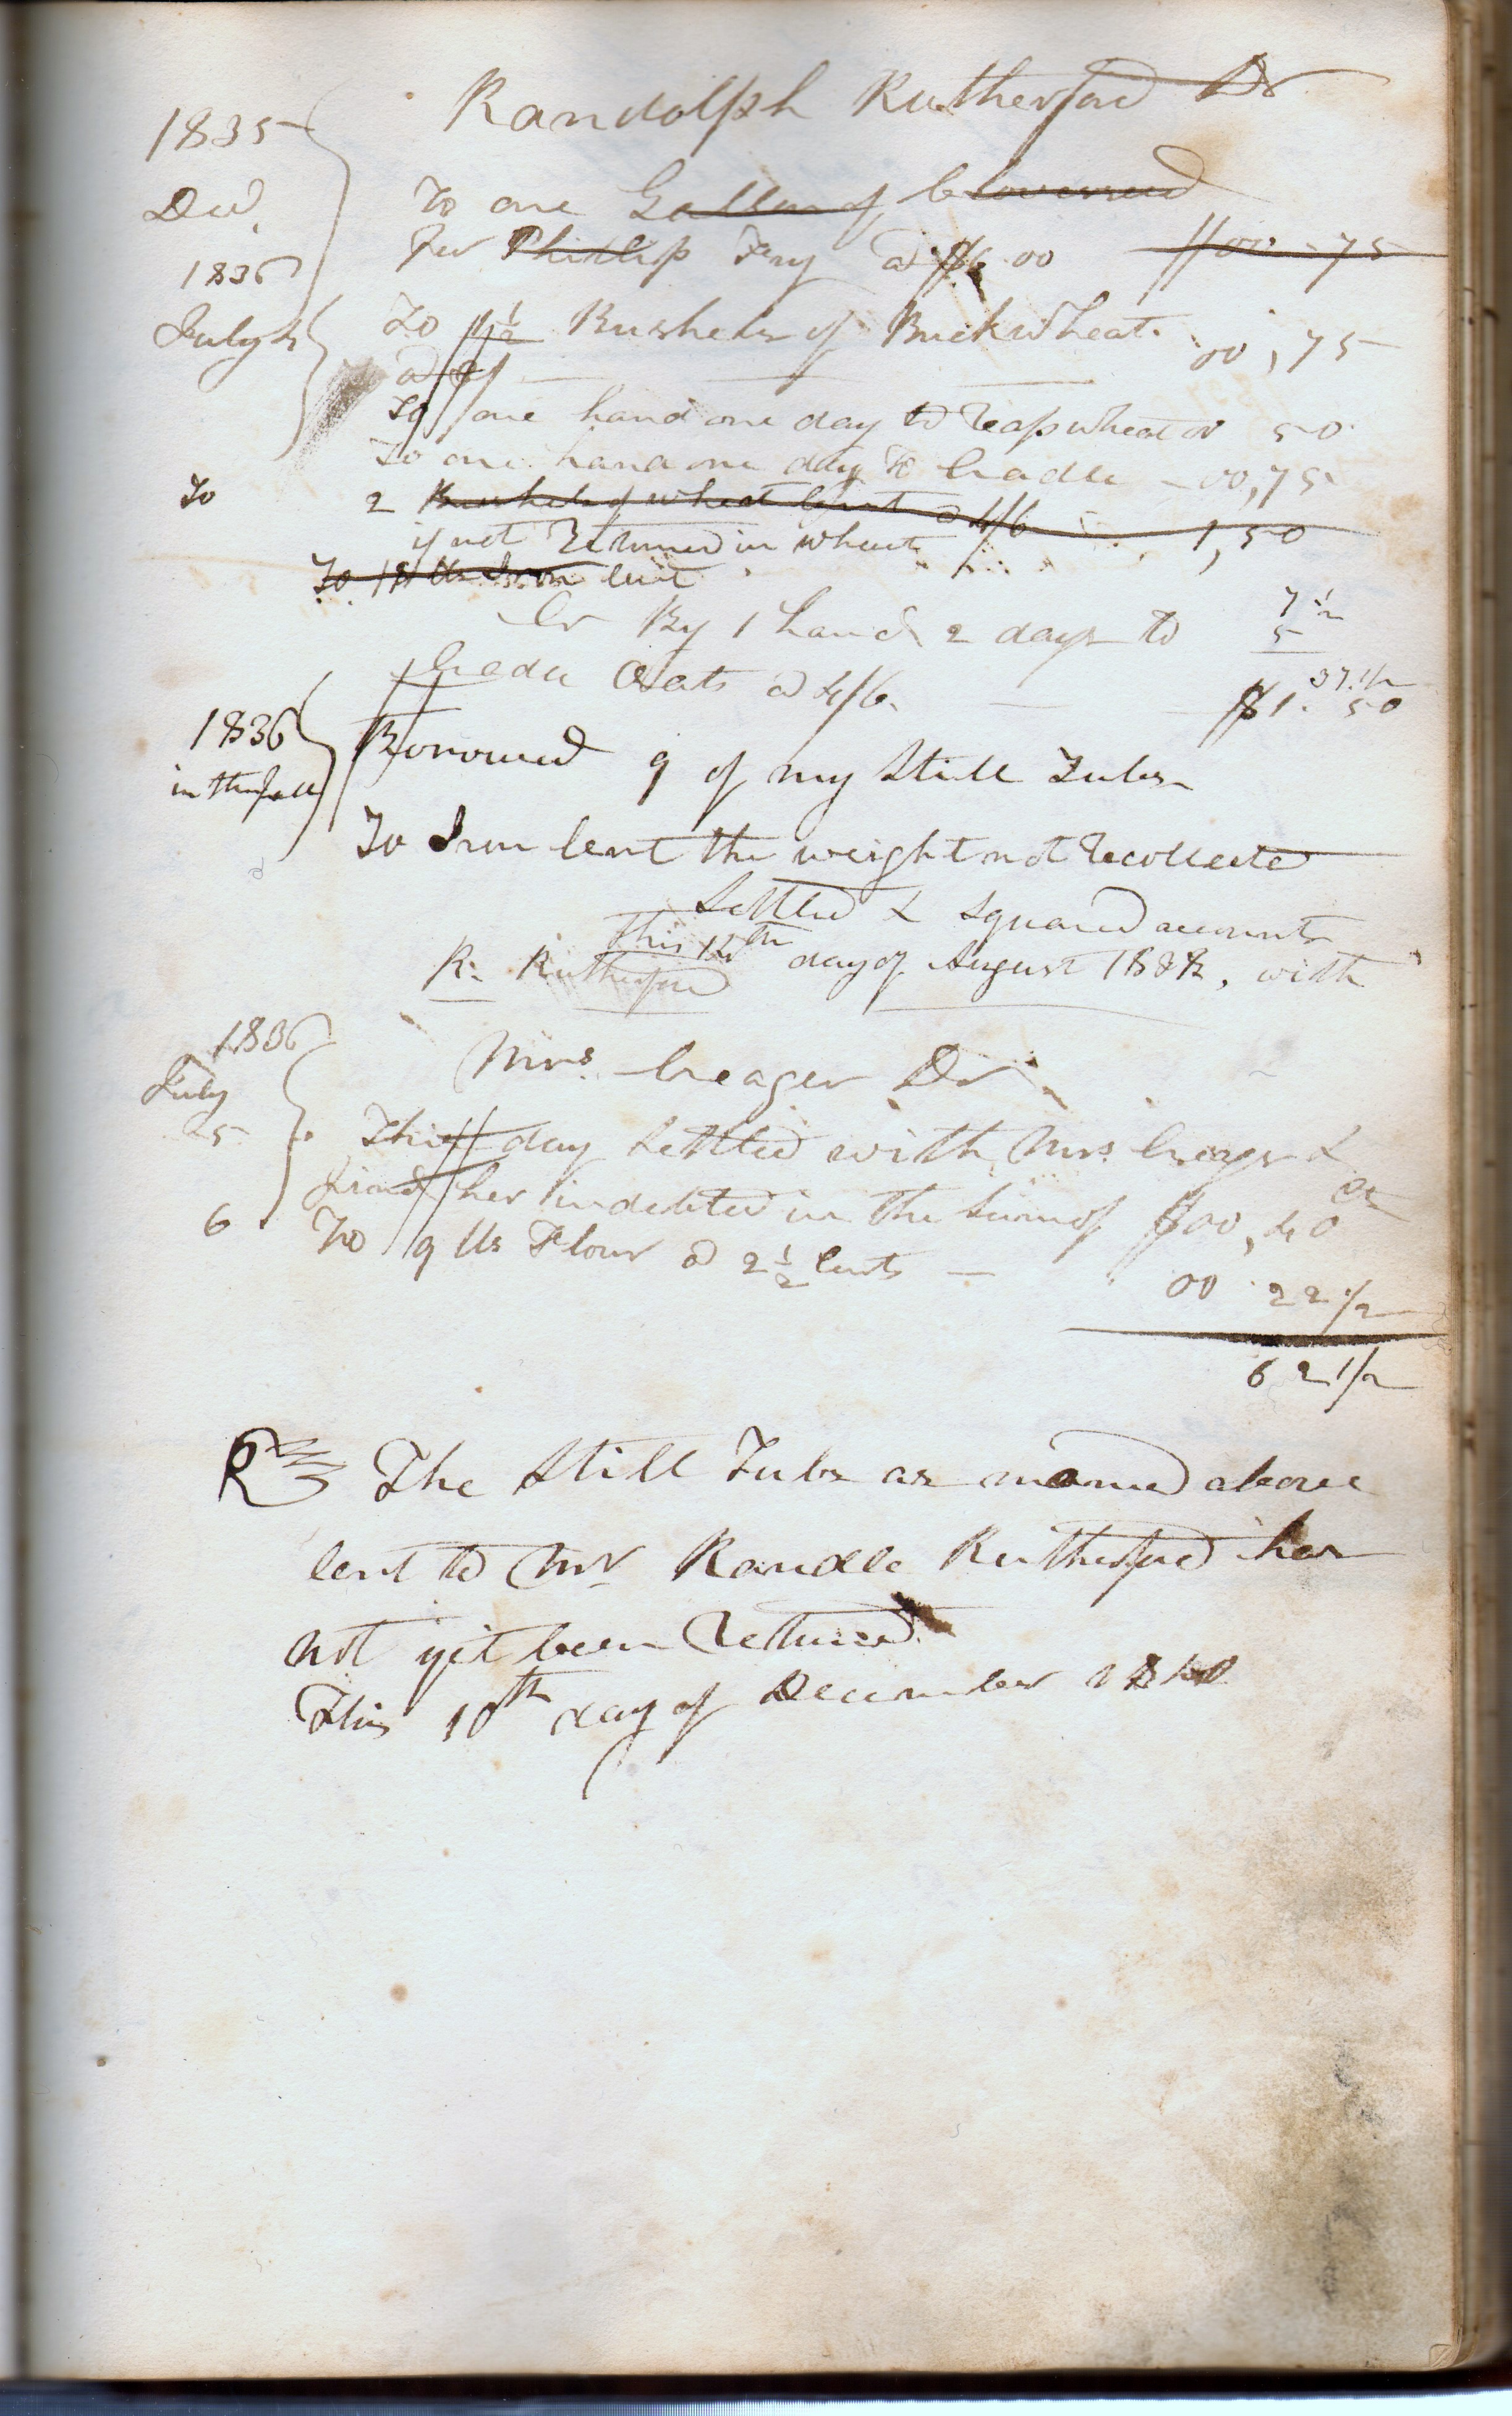 Randolph Rutherford Dr
1835
Decd,
To one Gallon of cloverseed
for Phillip Fry @ $6.00 $00-75
1836
July
To 1 1/2 Bushels of Buckwheat 00,75
To one hand one day to reap wheat 00 50
To one hand one day to Cradle - 00,75
To 2 Bushels of wheat lent @ 4/6 1,50
if not Returned in wheat
To 18 lbs Iron lent
Cr By 1 hand 2 days to
7 1/2
5
37.1/2
Cradle Oats @ 4/6. $1. 50
1836
in the fall
Borrowed 9 of my Still Tubs
To Iron lent the weight not Recollected
Settled & Squared accounts
this 12th day of August 1838, with
R. Rutherford
1836
July
25
Mrs. Creager Dr
This day Settled with Mrs Creager &
find her indebted in the Sum of $00,40
6 To 9 lbs Flour @ 2 1/2 Cents — 00 22 1/2
62 1/2
The Still Tubs as named above
lent to Mr Randle Rutherford has
not yet been Returned
This 10th day of December 1840